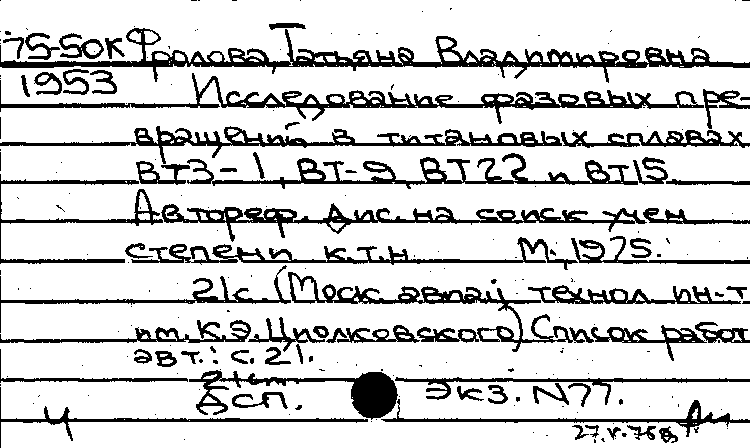 75-50к Фролова, Татьяна Владимировна
1953 Исследование фазовых пре-
вращений в титановых сплавах
ВТ3-1, ВТ-9, ВТ22 и ВТ15.
Автореф. дис. на соиск учен
степени к.т.н М., 1975.
21с. (Моск. авиац технол ин-т
им. К.Э. Циолковского) Список работ
авт.: с. 21.
21 ст.
ДСП. Экз. N77.
Ч
27.V.75